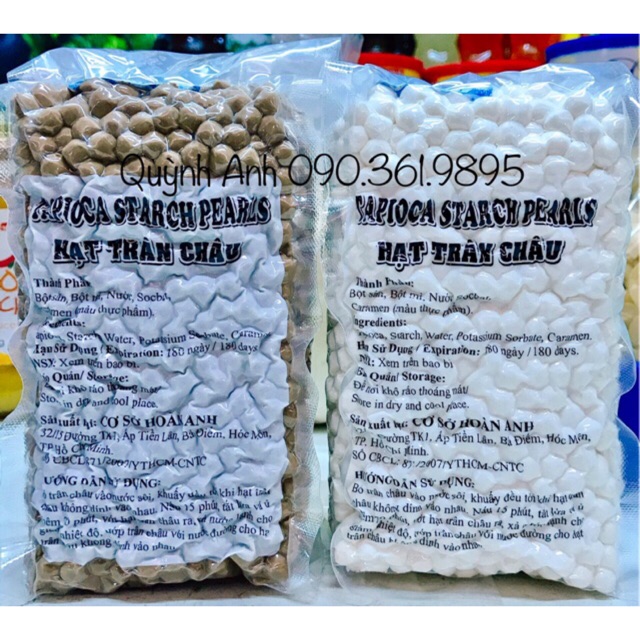 Quỳnh Anh 090.361.9895
TAPIOCA STARCH PEARLS
HẠT TRÂN CHÂU
Thành Phần
Bột sắn, Bột mì, Nước, Socbat,
Caramen (màu thực phẩm).
Starch, Water, Potassium Sorbate, Caramen
Hạn Sử Dụng / Expiration: 180 ngày / 180 days.
NSX: Xem trên bao bì.
Bảo Quản/ Storage:
khô ráo thoáng mát
Store in dry and cool place.
Sản xuất tại: CƠ SỞ HOÀN ANH
32/15 Đường TK1, Ấp Tiền Lân, Bà Điểm, Hóc Môn,
TP. Hồ Chí Minh.
SỐ CBCL: 871/2007/YTHCM-CNTC
HƯỚNG DẪN SỬ DỤNG:
trân châu vào nước sôi, khuấy đều tới khi hạt
châu không dính vào nhau. Nấu 15 phút, tắt lửa và ủ
nhiệt độ, trân châu với nước đường cho hạt
trân châu không dính vào nhau.
TAPIOCA STARCH PEARLS
HẠT TRÂY CHÂU
Thành Phần:
Bột sắn, Bột mì, Nước, Socbat,
Caramen (màu thực phẩm).
Ingredients:
Starch, Water, Potassium Sorbate, Caramen.
Hạn Sử Dụng / Expiration: 180 ngày / 180 days.
Xem trên bao bì.
Bảo Quản/ Storage:
Để nơi khô ráo thoáng mát/
Store in dry and cool place.
Sản xuất tại: CƠ SỞ HOÀN ANH
Đường TK1, Ấp Tiền Lân, Bà Điểm, Hóc Môn,
TP. Hồ Chí Minh.
SỐ CBCL: 871/2007/YTHCM-CNTC
HƯỚNG DẪN SỬ DỤNG:
Bỏ trân châu vào nước sôi, khuấy đều tới khi hạt
châu không dính vào nhau. Nấu 15 phút, tắt lửa và ủ
thêm phút, vớt hạt trân châu ra, xả lạnh cho
nhiệt độ, trân châu với nước đường cho hạt
trân châu không dính vào nhau.